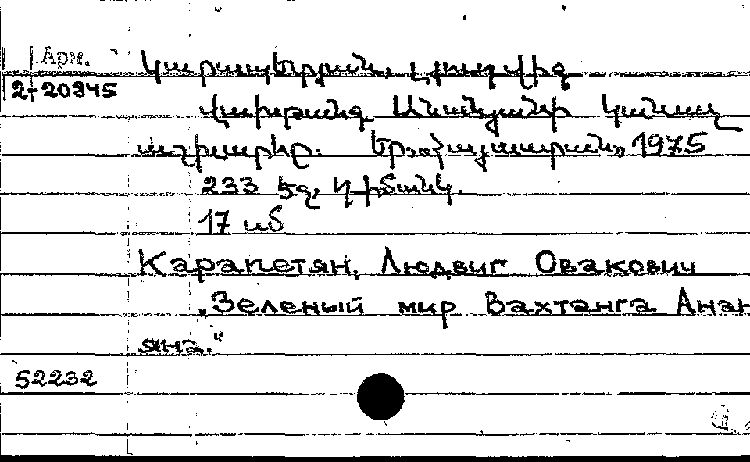 Арм.
2-20945
Կարապետյան, Լյուդվիգ
Վախթանգ Անանյանի կանաչ
աշխարհը. Եր., «Հայաստան», 1975
233 էջ, դիմանկ.
17 սմ
Карапетян, Людвиг Овакович
„Зеленый мир Вахтанга Анан
яна."
52232